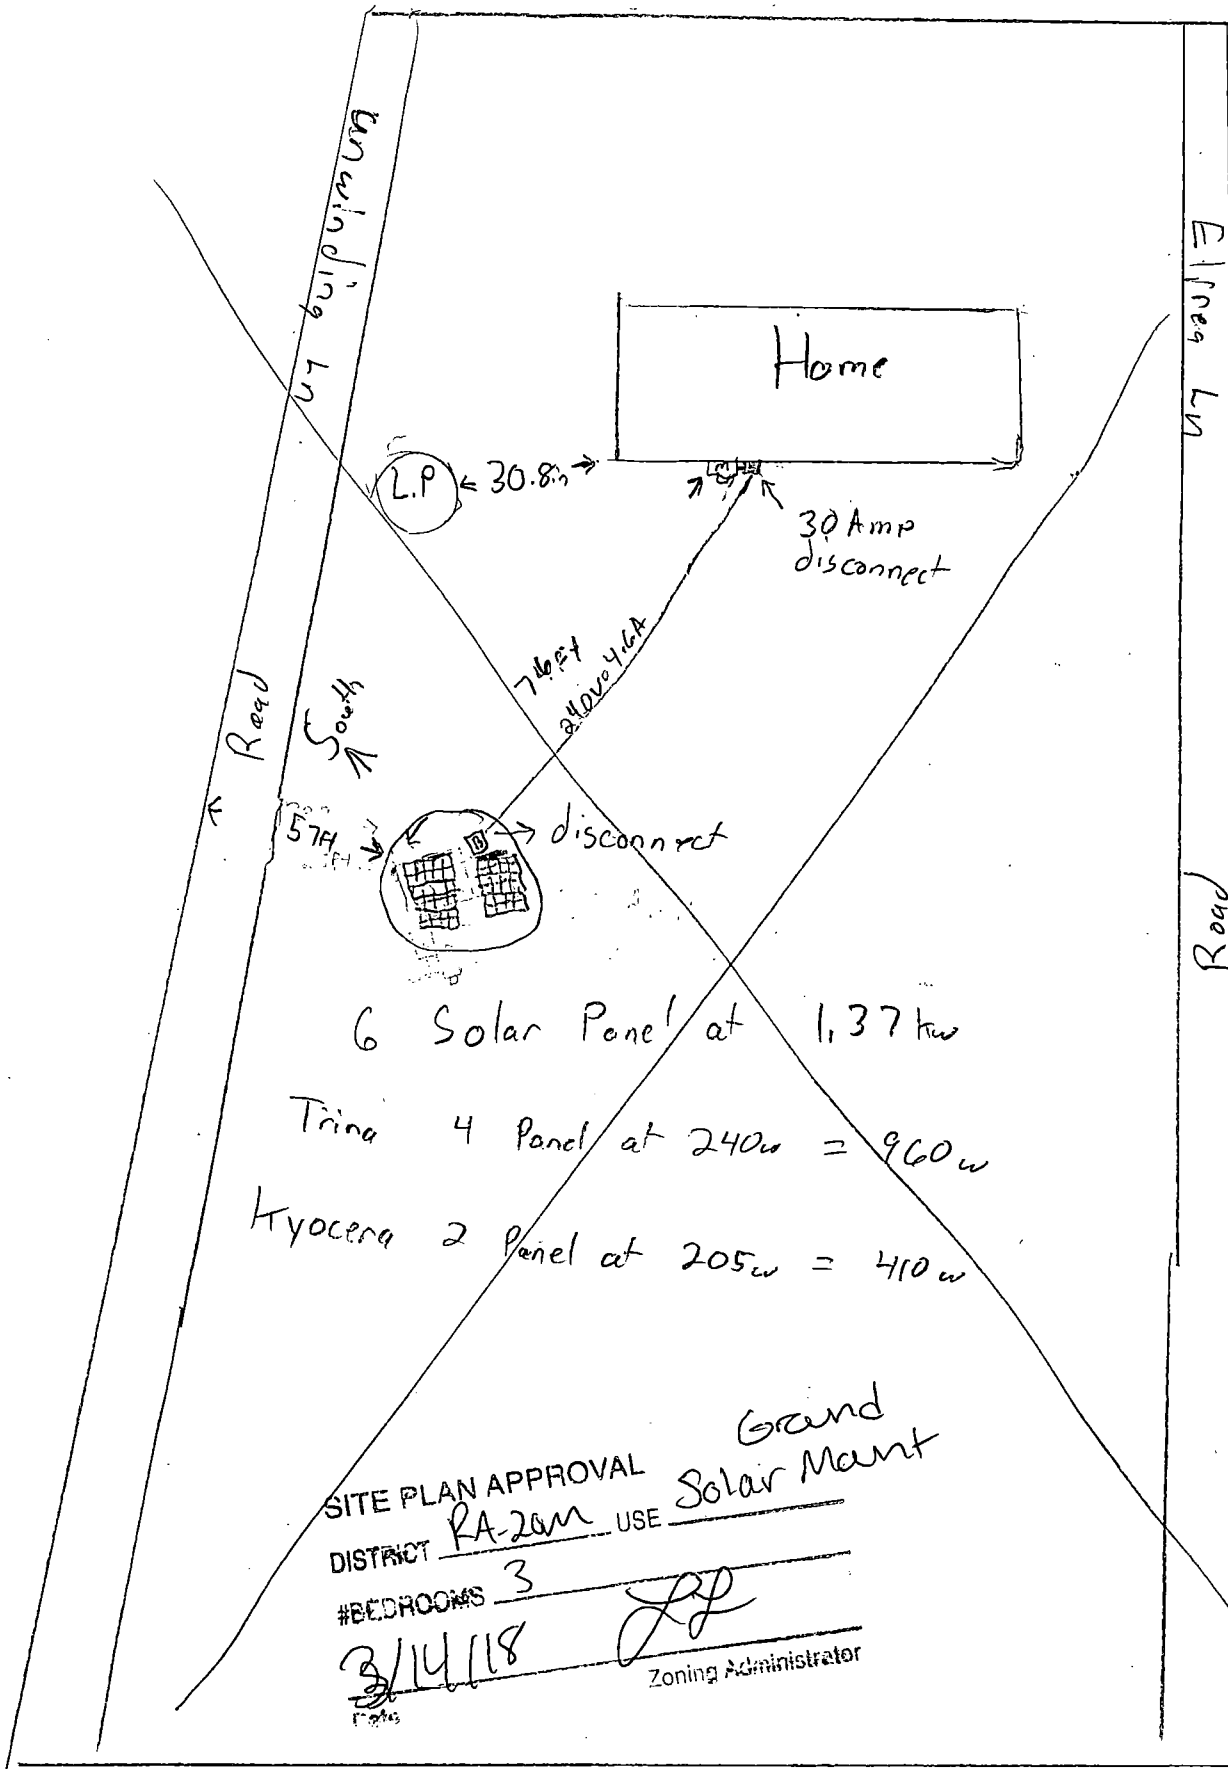 unwinding Ln
Road
Home
L.P
← 30.8in →
30 Amp
disconnect
240V 4.6A
South
57ft
disconnect
6 Solar Panel at 1.37 kw
Trina 4 Panel at 240w = 960w
Kyocera 2 Panel at 205w = 410w
Road
SITE PLAN APPROVAL
DISTRICT RA-20M USE Ground Solar Mount
#BEDROOMS 3
3/14/18
Date
Zoning Administrator